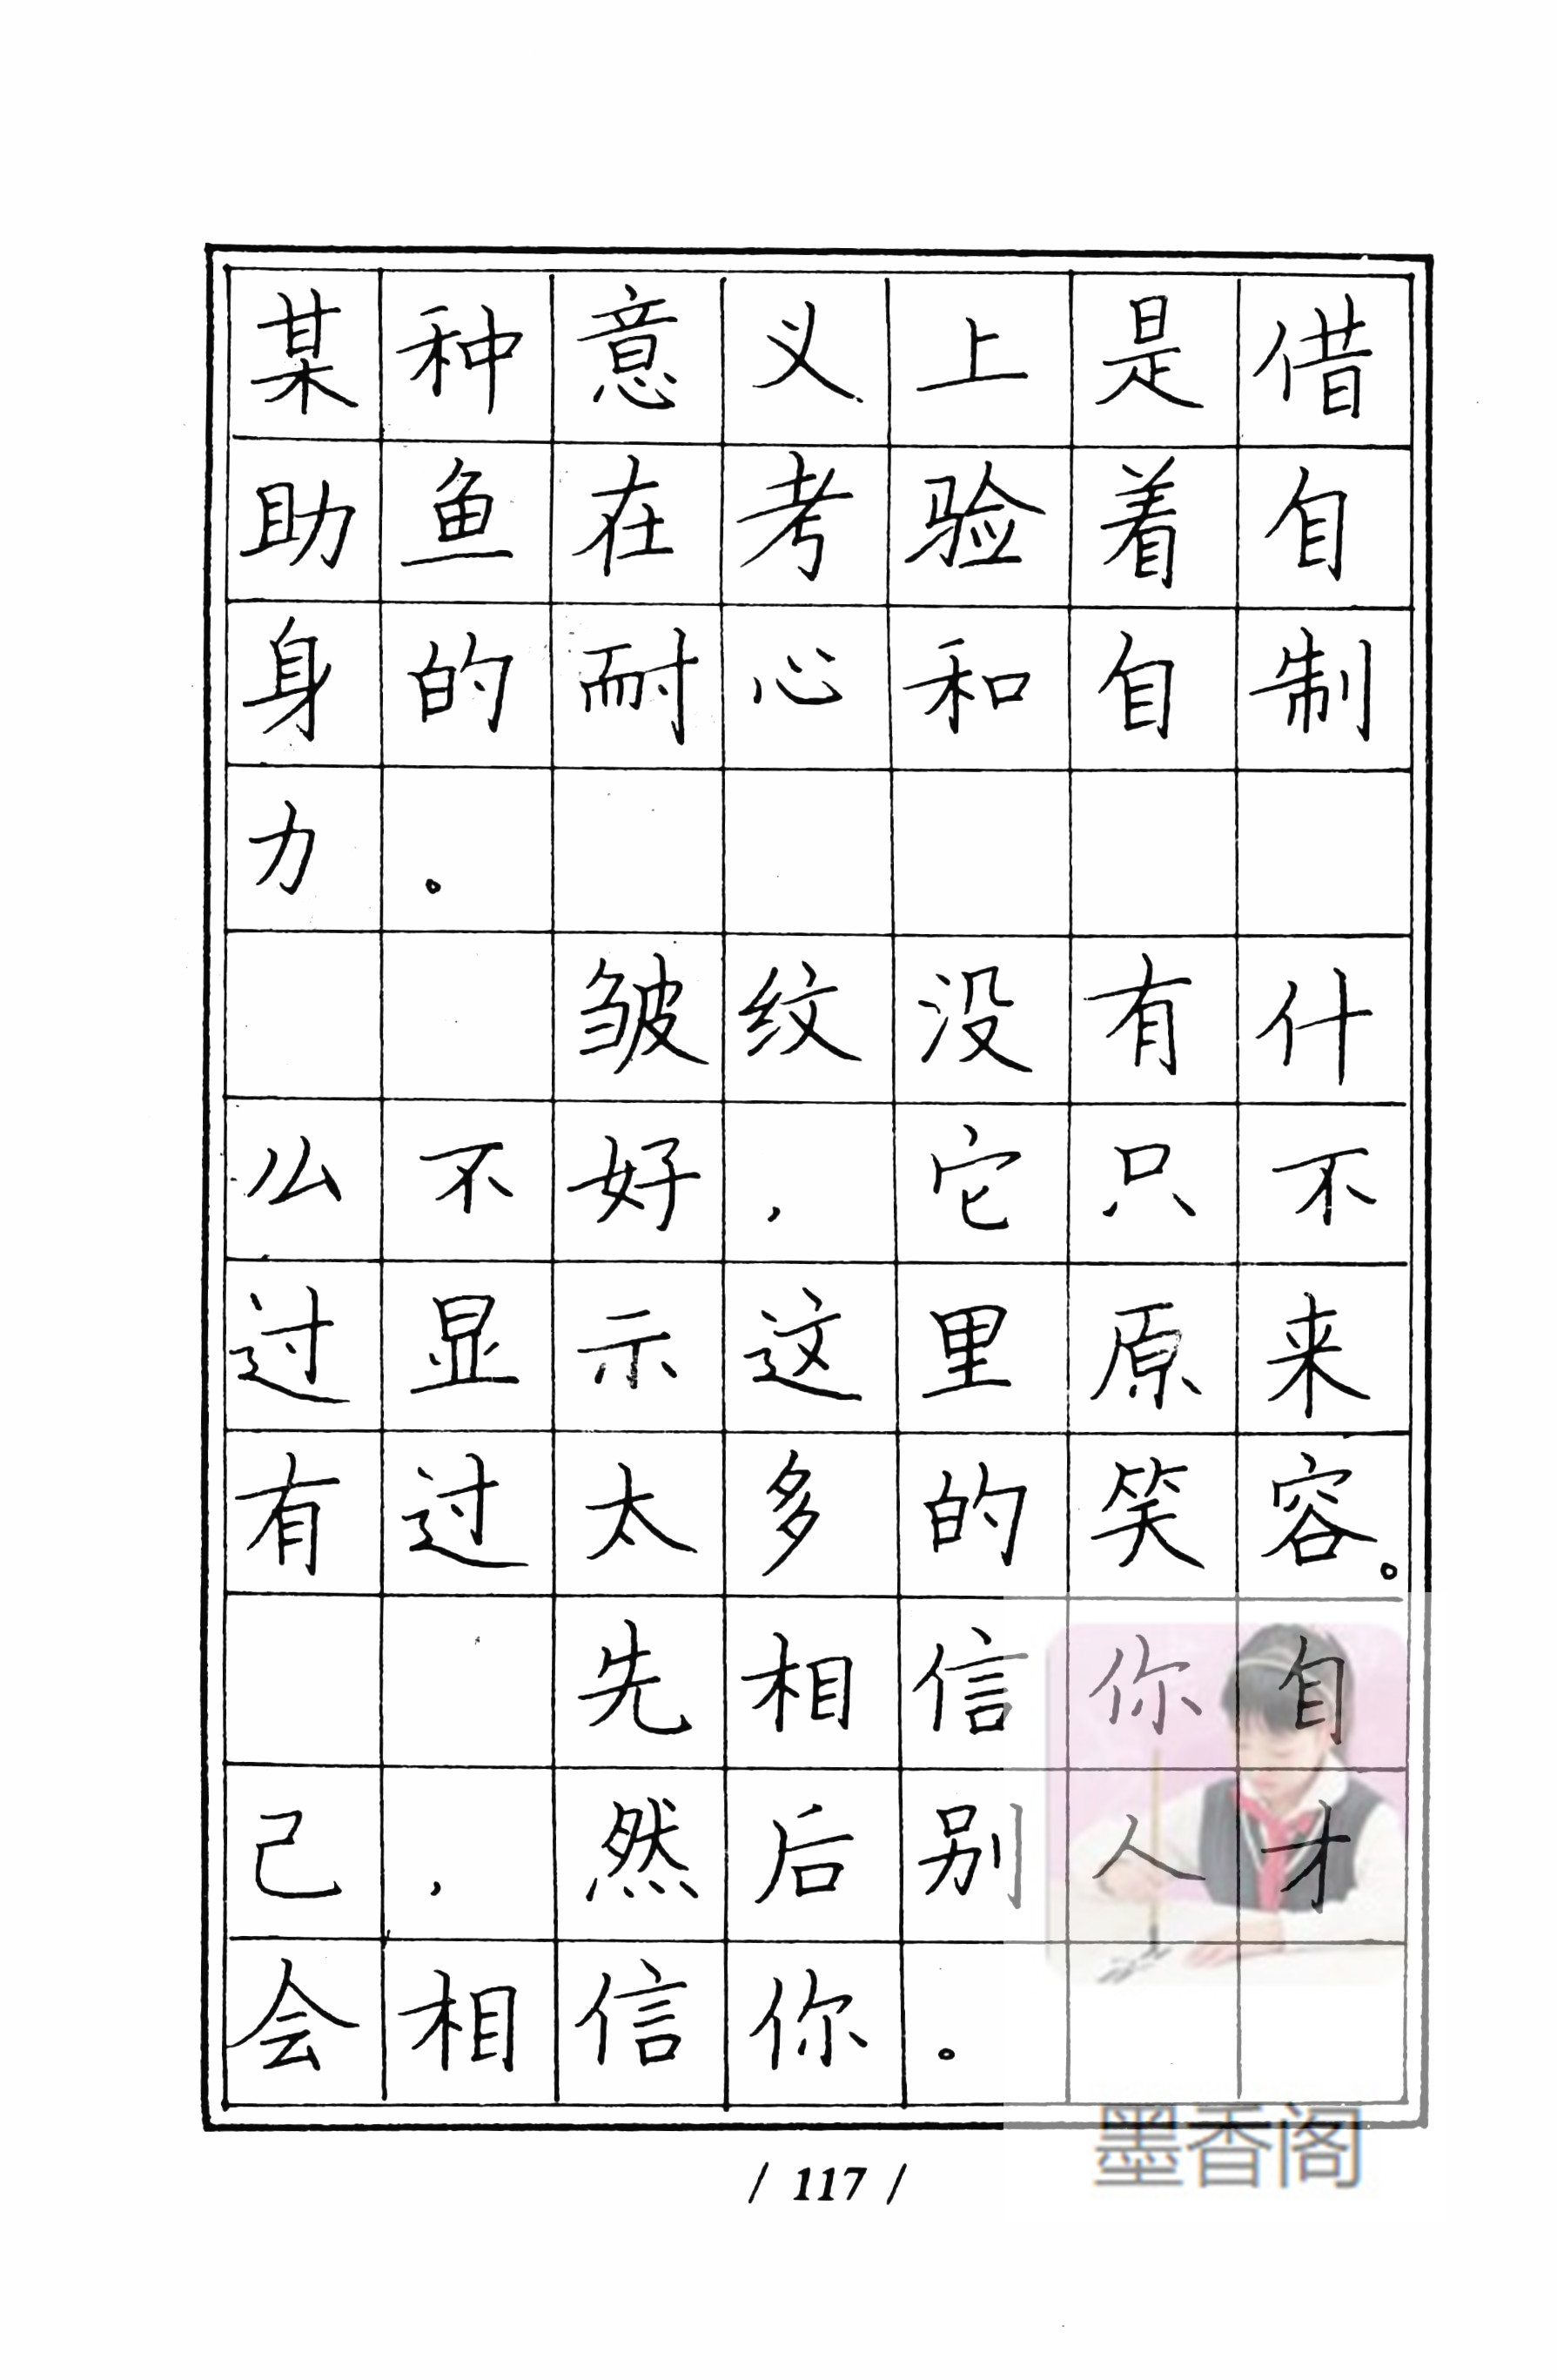 某种意义上是借
助鱼在考验着自
身的耐心和自制
力。
皱纹没有什
么不好，它只不
过显示这里原来
有过太多的笑容。
先相信你自
己，然后别人才
会相信你。
/ 117 /
墨香阁